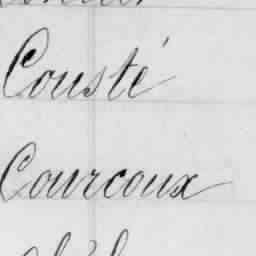 Cousté
Courcoux